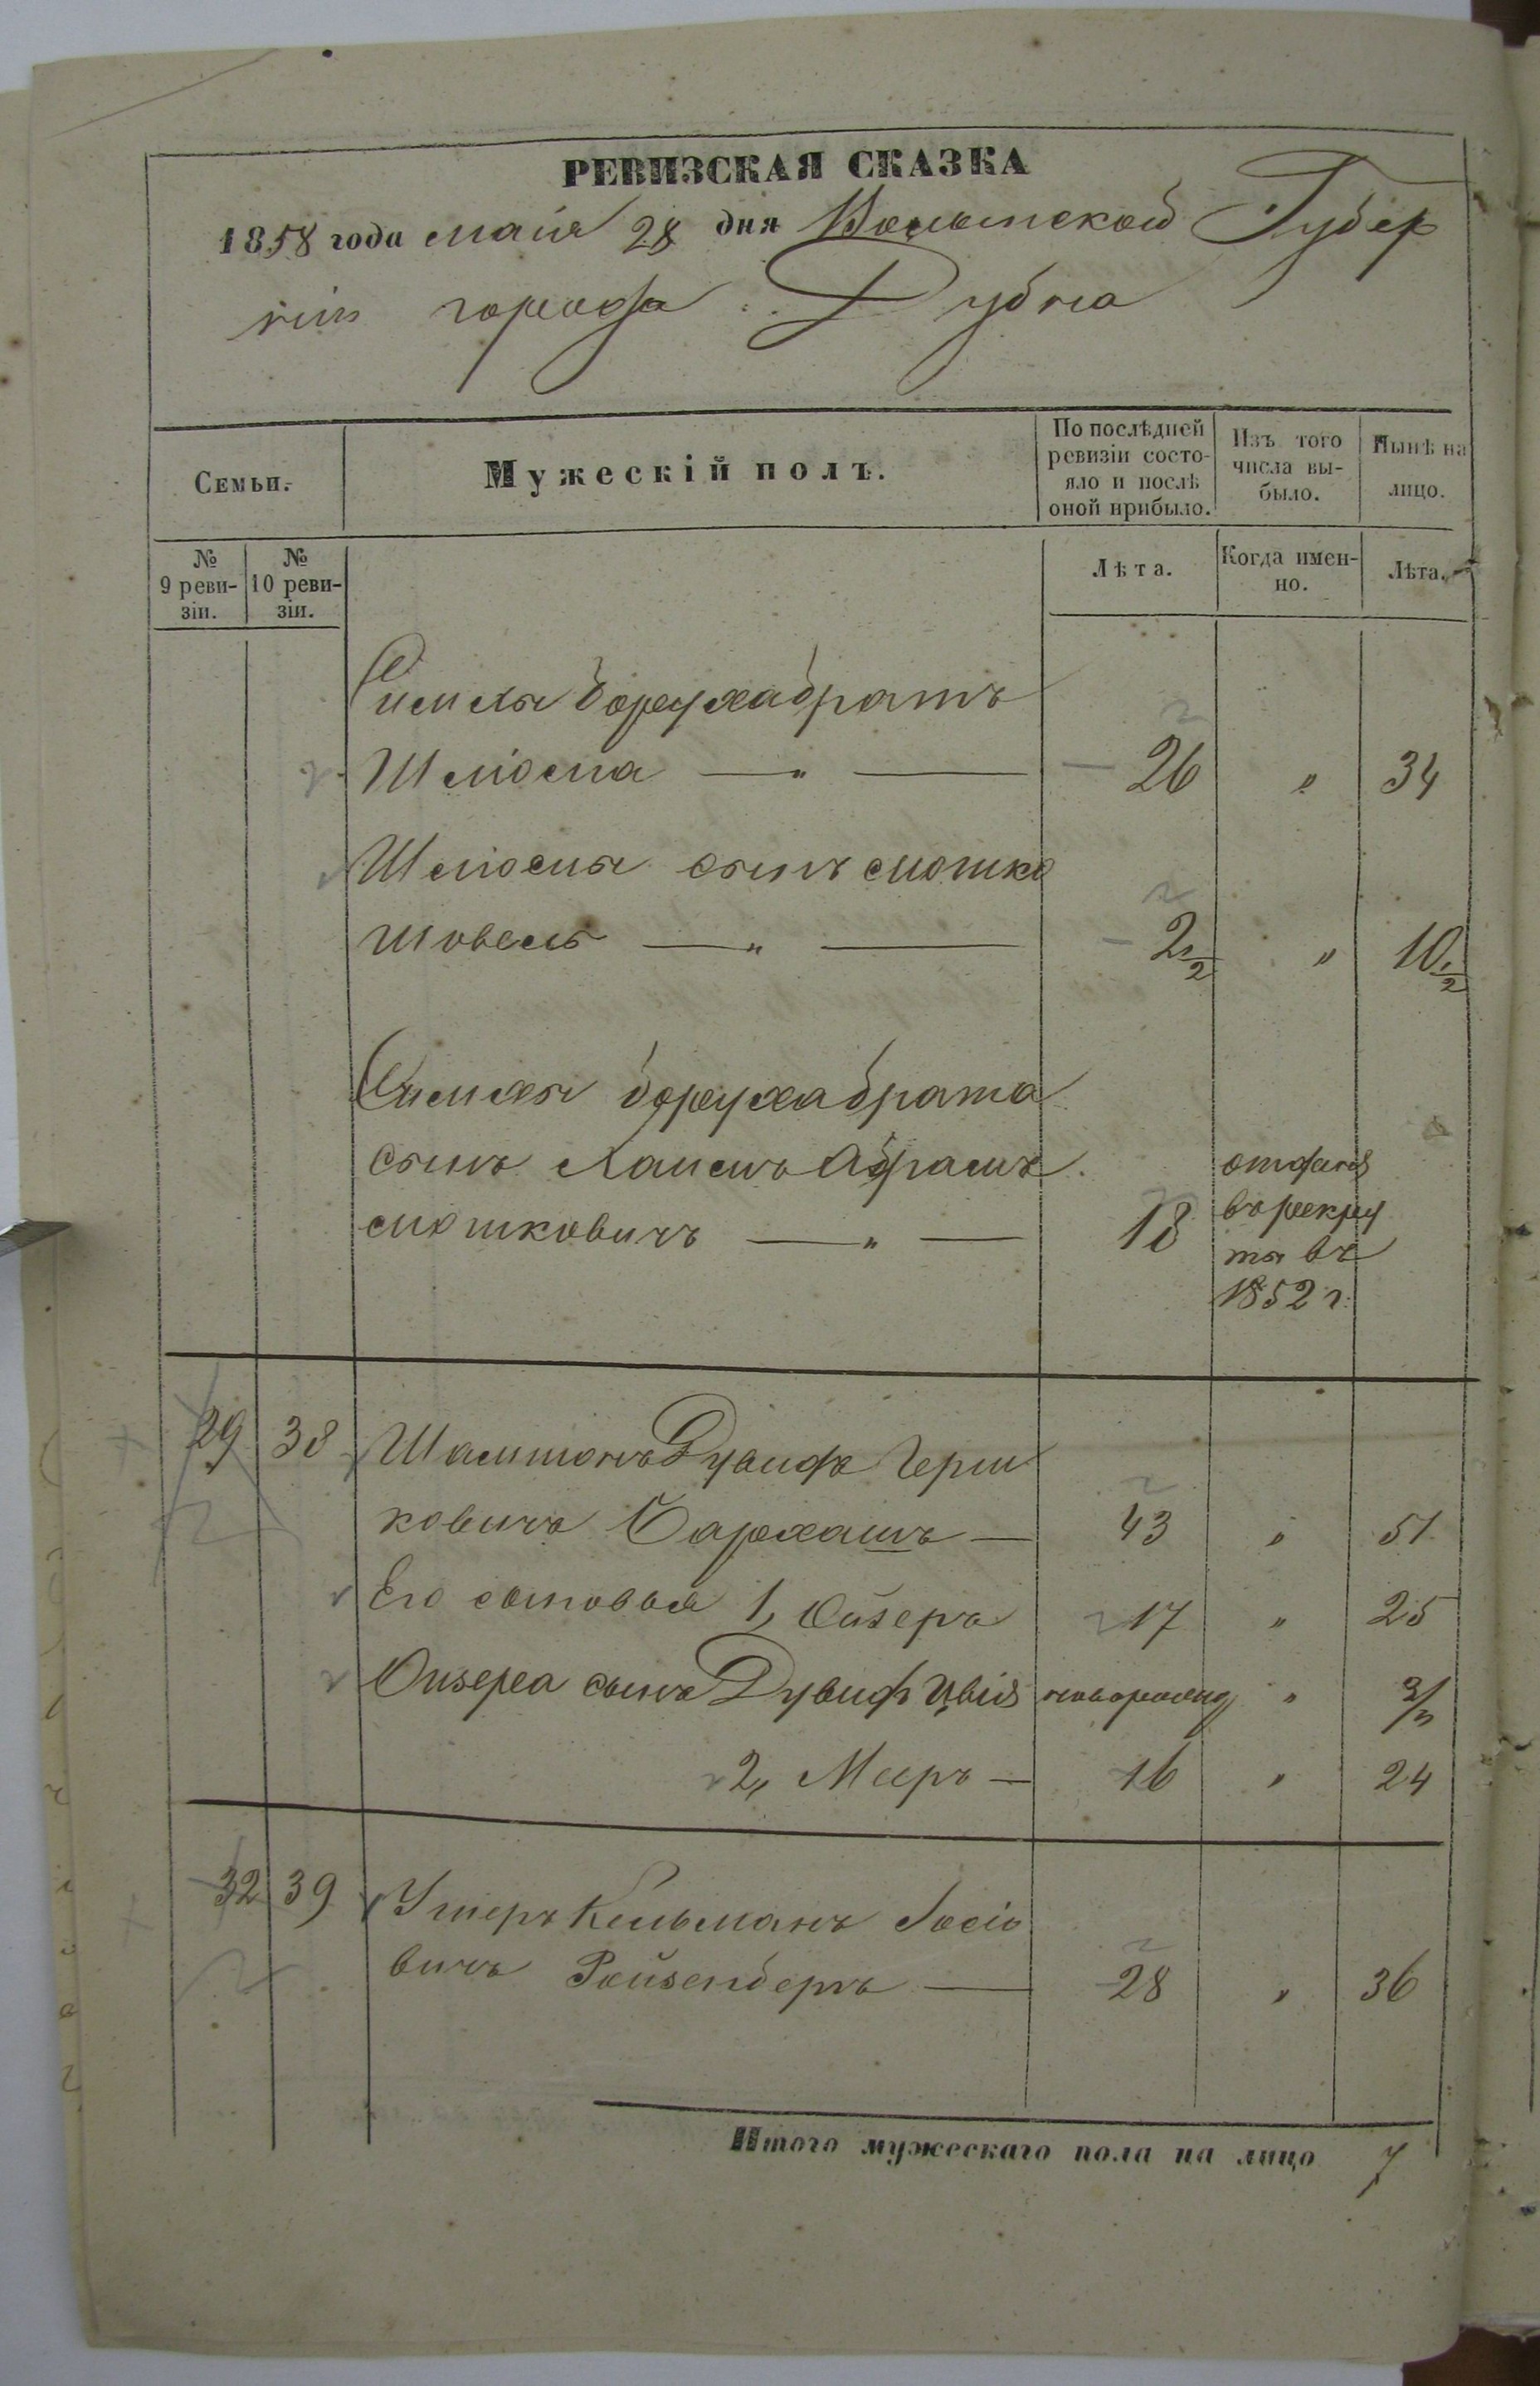 РЕВИЗСКАЯ СКАЗКА
1858 года маія 28 дня Волынской Губер
ніи города Дубна
Семьи.
Мужескій полъ.
По послѣдней ревизіи состо-
яло и послѣ
оной прибыло.
Изъ того
числа вы-
было.
Нынѣ на
лицо.
№
9 реви-
зіи.
№
10 реви-
зіи.
Лѣта.
Когда имен-
но.
Лѣта.
Симхи Боруха братъ
Шліома — „ — 26 „ 34
Шліомы сынъ Мошко
Шовель — „ — 2 1/2 „ 10 1/2
Симхи Боруха брата
сынъ Абрамъ
Мошковичъ — „ — 18
отданъ
въ рекру
ты въ
1852 г.
29 38 Дувидъ Герш
ковичъ — 43 „ 51
Его сыновья 1, Ойзеръ 17 „ 25
Ойзера сынъ Дувидъ Цвія новорожд „
2, Мееръ — 16 „ 24
32 39 Ушеръ Кельманъ Іосіо
вичъ Ройзенберъ — 28 „ 36
Итого мужескаго пола на лицо 7